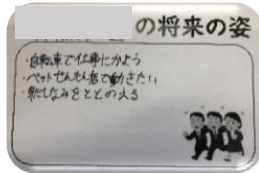 の将来の姿
・自転車で仕事にかよう
・ペットせんもん店で働きたい
・身だしなみをととのえる